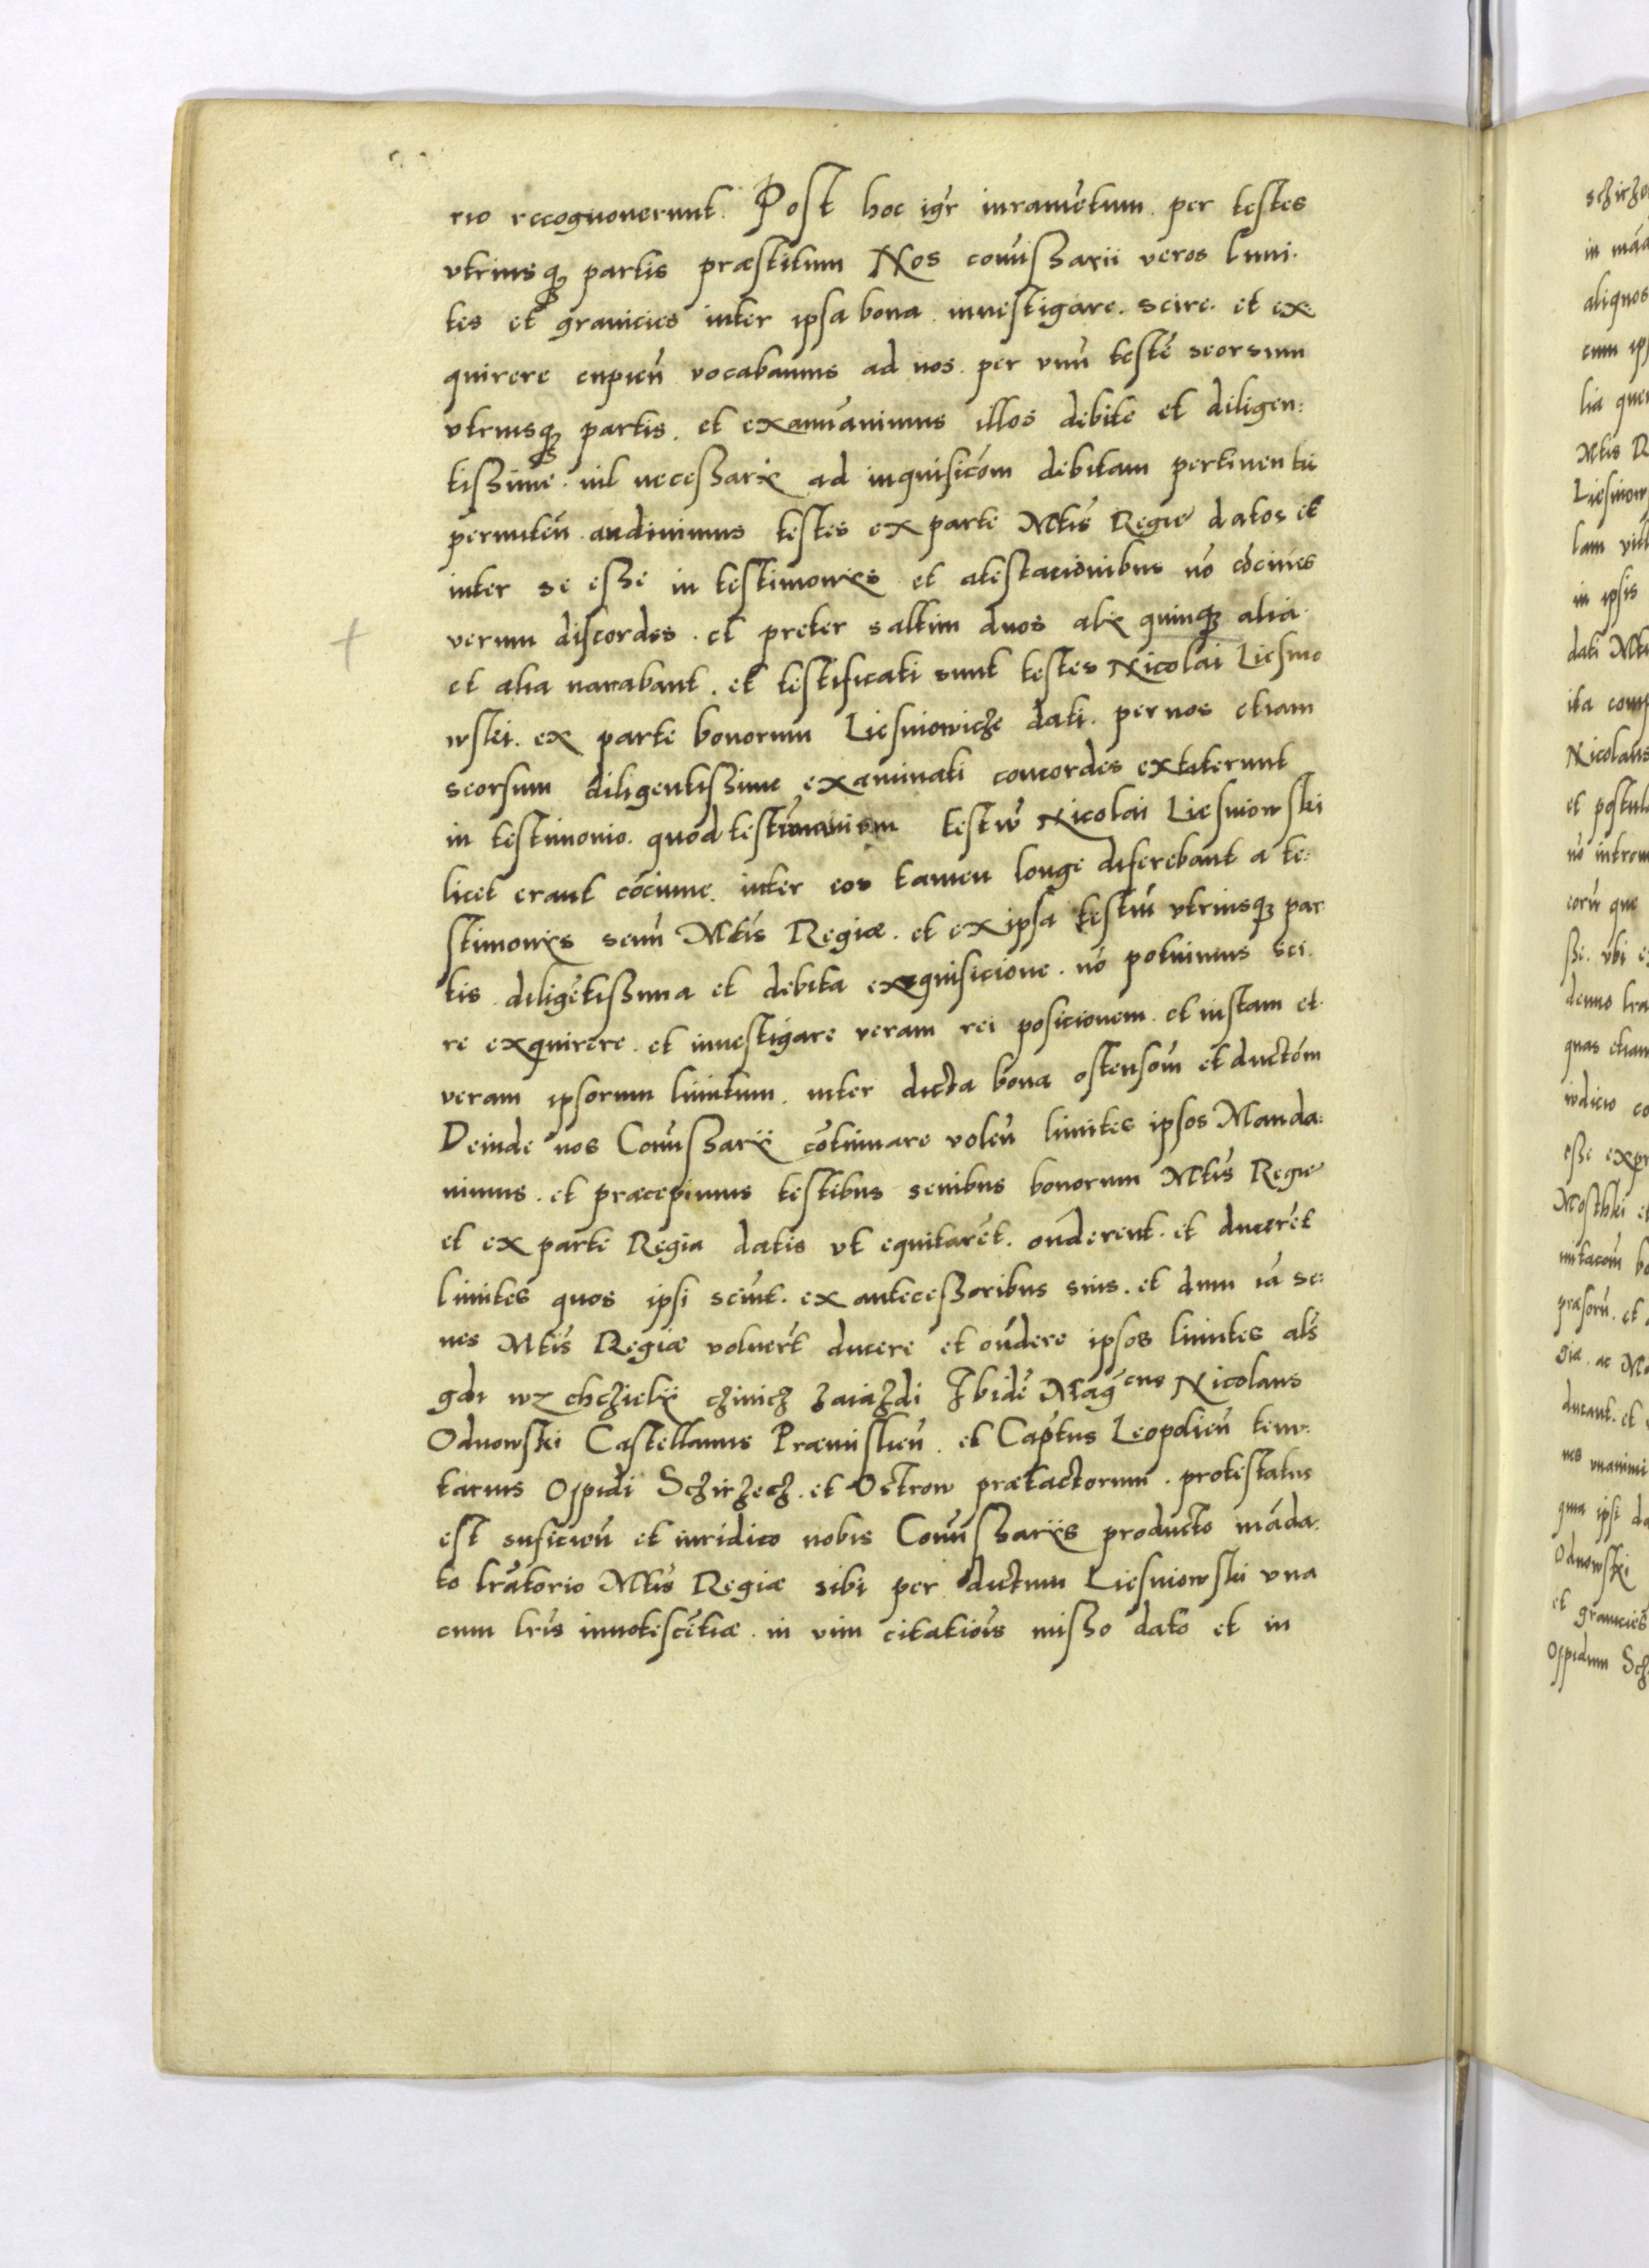 rio recognoverunt. Post hoc igr̃ iuramẽtum per testes
vtriusq3 partis præstitum Nos com̃issarii veros limi-
tes et granicies inter ipsa bona investigare. scire. et ex-
quirere cupieñ vocabamus ad nos. per vnũ testẽ seorsum
vtriusq3 partis. et examĩavimus illos debite et diligen:
tissime. nil necessarij ad inquisicõm debitam pertinentii
permiteñ. audivimus testes ex parte Mtis Regie datos et
inter se esse in testimonijs et atestacionibus nõ cõcines
verum discordes. et preter saltim duos alij quinq3 alia
et alia narabant. et testificati sunt testes Nicolai Liesnio
wski. ex parte bonorum Liesniowicze dati. per nos etiam
seorsum diligentissime examinati concordes extiterunt
in testimonio. quod testimonium testiũ Nicolai Liesniowski
licet erant cõcinne. inter eos tamen longe diferebant a te:
stimonijs senũ Mtis Regiæ. et ex ipsa testiũ vtriusq3 par-
tis diligẽtissima et debita exquisicione. nõ potuimus sci-
re exquirere. et investigare veram rei posicionem et iustam et
veram ipsorum limitum. inter dicta bona ostensõm et ductõm
Deinde nos Com̃issarij cõtinuare voleñ limites ipsos Manda:
uimus. et præcepimus testibus senibus bonorum Mtis Regie
et ex parte Regia datis vt equitarẽt. oñderent. et ducerẽt
limites quos ipsi sciũt. ex antecessoribus suis. et dum iã se:
nes Mtis Regiæ volueřt ducere et oñdere ipsos limites als
gdi wz chczielij czinicz zaiazdi Ibidẽ Mag̃cus Nicolaus
Odnowski Castellanus Præmislieñ. et Captus Leopolieñ tenu:
tarius Oppidi Sczirzecz. et Ostrow prætactorum. protestatus
est suficieñ et iuridico nobis Com̃issarijs producto mãda:
to lrãtorio Mtis Regiæ sibi per dictum Liesniowski vna
cum lris innotescẽtiæ. in vim citatiõis misso dato et in